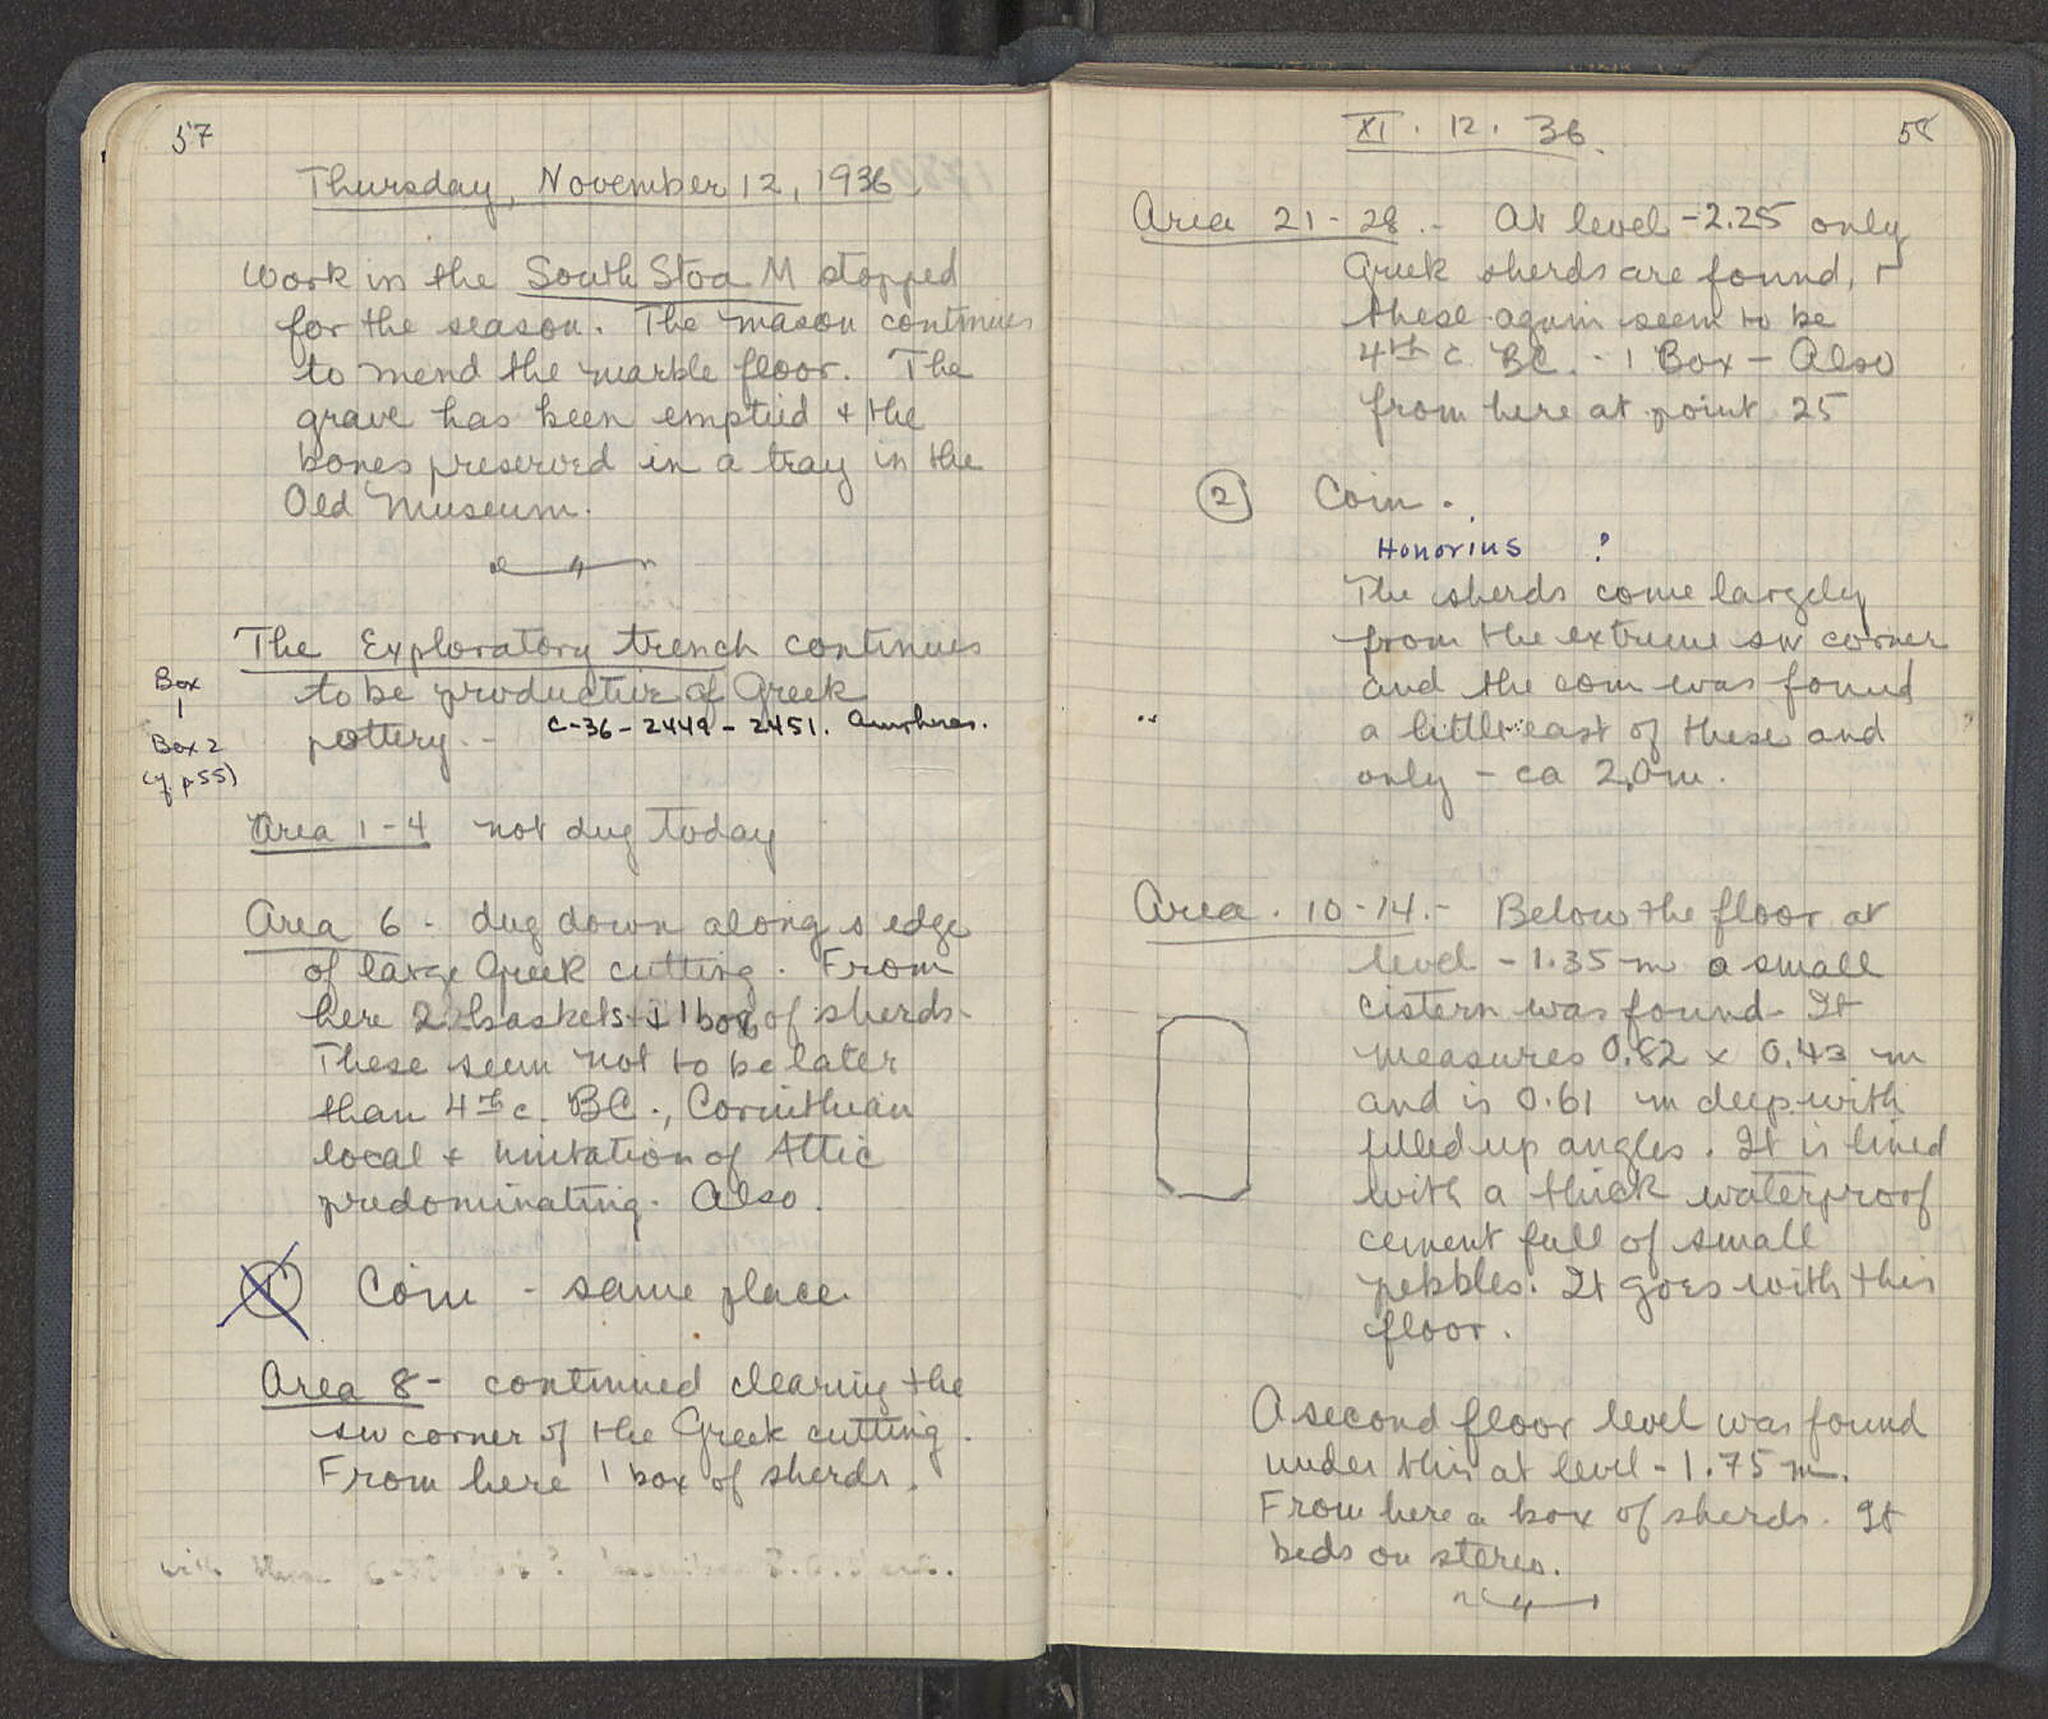 57
Thursday, November 12, 1936.
Work in the South Stoa M stopped
for the season. The mason continues
to mend the marble floor. The
grave has been emptied & the
bones preserved in a tray in the
Old Museum.
The Exploratory trench continues
to be productive of Greek
pottery. - C-36-2449-2451. Amphoras.
Box
1
Box 2
(cf. p 55)
Area 1-4 not dug today
Area 6 - dug down along s edge
of large Greek cutting. From
here 2 baskets + 1 box of sherds.
These seem not to be later
than 4th c. BC., Corinthian
local & imitation of Attic
predominating. Also.
1 Coin - same place.
Area 8 - continued clearing the
sw corner of the Greek cutting.
From here 1 box of sherds.
XI. 12. 36.
58
Area 21-28.- At level -2.25 only
Greek sherds are found, +
these again seem to be
4th c BC. - 1 Box - Also
from here at point 25
2 Coin.
Honorius ?
The sherds come largely
from the extreme sw corner
and the coin was found
a little east of these and
only - ca 2.0m.
Area. 10-14.- Below the floor at
level -1.35 m a small
cistern was found. It
measures 0.82 x 0.43 m
and is 0.61 m deep with
filled up angles. It is lined
with a thick waterproof
cement full of small
pebbles. It goes with this
floor.
A second floor level was found
under this at level -1.75 m.
From here a box of sherds. It
beds on stereo.